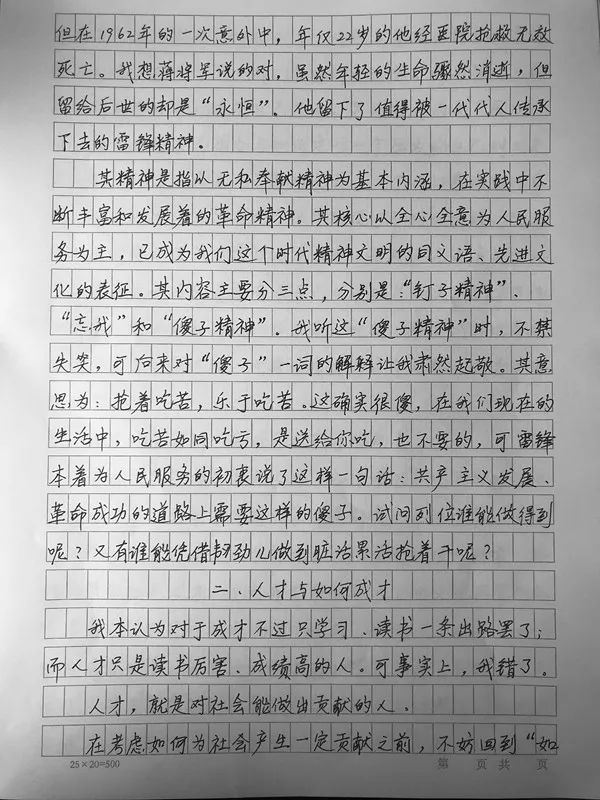 但在1962年的一次意外中，年仅22岁的他经医院抢救无效
死亡。我想蒋将军说的对，虽然年轻的生命骤然消逝，但
留给后世的却是“永恒”。他留下了值得被一代代人传承
下去的雷锋精神。
其精神是指以无私奉献精神为基本内涵，在实践中不
断丰富和发展着的革命精神。其核心以全心全意为人民服
务为主，已成为我们这个时代精神文明的同义语、先进文
化的表征。其内容主要分三点，分别是：“钉子精神”、
“忘我”和“傻子精神”。我听这“傻子精神”时，不禁
失笑，可后来对“傻子”一词的解释让我肃然起敬。其意
思为：抢着吃苦，乐于吃苦。这确实很傻，在我们现在的
生活中，吃苦如同吃亏，是送给你吃，也不要的，可雷锋
本着为人民服务的初衷说了这样一句话：共产主义发展、
革命成功的道路上需要这样的傻子。试问列位谁能做得到
呢？又有谁能凭借韧劲儿做到脏活累活抢着干呢？
二、人才与如何成才
我本认为对于成才不过只学习、读书一条出路罢了；
而人才只是读书厉害、成绩高的人。可事实上，我错了。
人才，就是对社会能做出贡献的人。
在考虑如何为社会产生一定贡献之前，不妨回到“如
25×20=500 第 页共 页